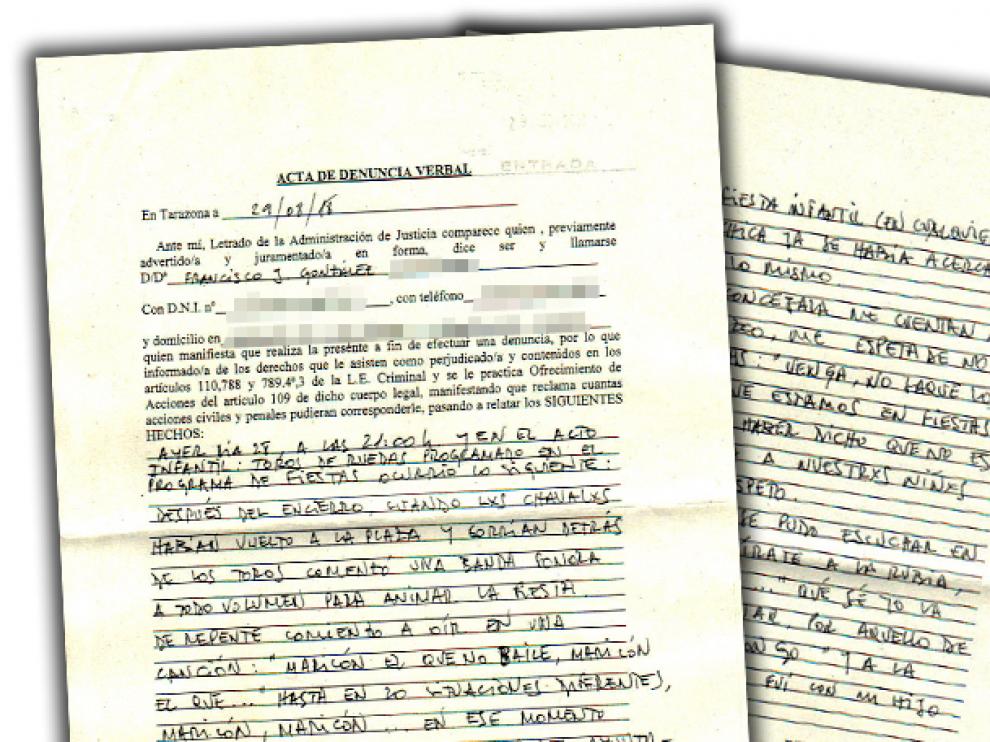 ENTRADA
ACTA DE DENUNCIA VERBAL
En Tarazona a 29/08/18
Ante mí, Letrado de la Administración de Justicia comparece quien , previamente
advertido/a y juramentado/a en forma, dice ser y llamarse
D/Dª FRANCISCO J. GONZÁLEZ
Con D.N.I. nº , con teléfono
y domicilio en
quien manifiesta que realiza la presente a fin de efectuar una denuncia, por lo que
informado/a de los derechos que le asisten como perjudicado/a y contenidos en los
artículos 110,788 y 789,4º,3 de la L.E. Criminal y se le practica Ofrecimiento de
Acciones del articulo 109 de dicho cuerpo legal, manifestando que reclama cuantas
acciones civiles y penales pudieran corresponderle, pasando a relatar los SIGUIENTES
HECHOS:
AYER DÍA 28, A LAS 21:00 h. Y EN EL ACTO
INFANTIL: TOROS DE RUEDAS PROGRAMADO EN EL
PROGRAMA DE FIESTAS OCURRIÓ LO SIGUIENTE:
DESPUÉS DEL ENCIERRO, CUANDO LXS CHAVALXS
HABÍAN VUELTO A LA PLAZA Y CORRÍAN DETRÁS
DE LOS TOROS COMENTÓ UNA BANDA SONORA
A TODO VOLUMEN PARA ANIMAR LA FIESTA.
DE REPENTE COMIENTO A OÍR EN UNA
CANCIÓN: "MARICÓN EL QUE NO BAILE, MARICÓN
EL QUE..." HASTA EN 20 SITUACIONES DIFERENTES,
MARICÓN, MARICÓN... EN ESE MOMENTO
FIESTA INFANTIL (EN CUALQUIE
YA SE HABÍA ACERCA
LO MISMO.
CONCEJALA ME CUENTAN,
ME ESPETA DE NO
: "VENGA, NO SAQUE LO
QUE ESTAMOS EN FIESTAS
HABER DICHO QUE NO ES
A NUESTRXS NIÑXS
SPETO.
SE PUDO ESCUCHAR EN
ÍRATE A LA RUBIA,
..." QUÉ SÉ YO LA
TAR, POR AQUELLO DE
ONGO" Y A LA
CON MI HIJO